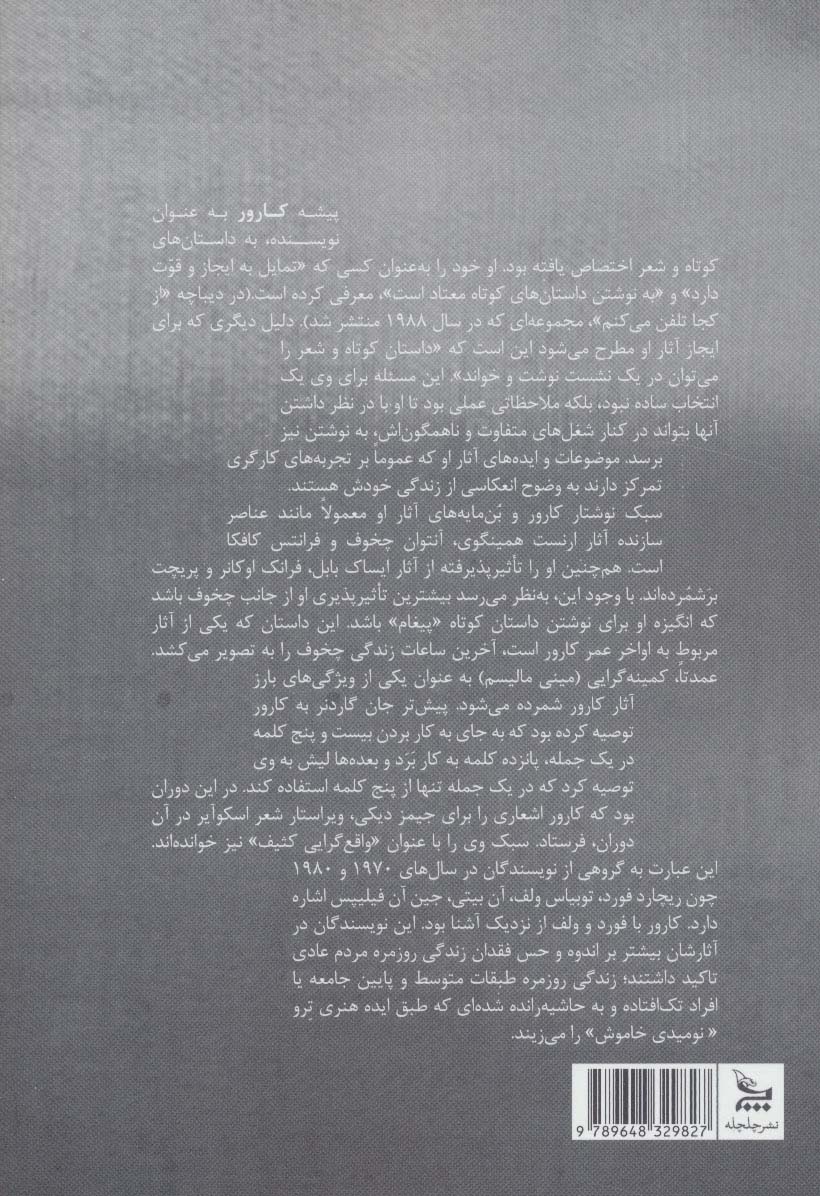 پیشه کارور به عنوان
نویسنده، به داستان‌های
کوتاه و شعر اختصاص یافته بود. او خود را به‌عنوان کسی که «تمایل به ایجاز و قوّت
دارد» و «به نوشتن داستان‌های کوتاه معتاد است»، معرفی کرده است.(در دیباچه «از
کجا تلفن می‌کنم»، مجموعه‌ای که در سال ۱۹۸۸ منتشر شد). دلیل دیگری که برای
ایجاز آثار او مطرح می‌شود این است که «داستان کوتاه و شعر را
می‌توان در یک نشست نوشت و خواند». این مسئله برای وی یک
انتخاب ساده نبود، بلکه ملاحظاتی عملی بود تا او با در نظر داشتن
آنها بتواند در کنار شغل‌های متفاوت و ناهمگون‌اش، به نوشتن نیز
برسد. موضوعات و ایده‌های آثار او که عموماً بر تجربه‌های کارگری
تمرکز دارند به وضوح انعکاسی از زندگی خودش هستند.
سبک نوشتار کارور و بُن‌مایه‌های آثار او معمولاً مانند عناصر
سازنده آثار ارنست همینگوی، آنتوان چخوف و فرانتس کافکا
است. هم‌چنین او را تأثیرپذیرفته از آثار ایساک بابل، فرانک اوکانر و پریچت
برَشمُرده‌اند. با وجود این، به‌نظر می‌رسد بیشترین تأثیرپذیری او از جانب چخوف باشد
که انگیزه او برای نوشتن داستان کوتاه «پیغام» باشد. این داستان که یکی از آثار
مربوط به اواخر عمر کارور است، آخرین ساعات زندگی چخوف را به تصویر می‌کشد.
عمدتاً، کمینه‌گرایی (مینی مالیسم) به عنوان یکی از ویژگی‌های بارز
آثار کارور شمرده می‌شود. پیش‌تر جان گاردنر به کارور
توصیه کرده بود که به جای به کار بردن بیست و پنج کلمه
در یک جمله، پانزده کلمه به کار بَرَد و بعدها لیش به وی
توصیه کرد که در یک جمله تنها از پنج کلمه استفاده کند. در این دوران
بود که کارور اشعاری را برای جیمز دیکی، ویراستار شعر اسکوآیر در آن
دوران، فرستاد. سبک وی را با عنوان «واقع‌گرایی کثیف» نیز خوانده‌اند.
این عبارت به گروهی از نویسندگان در سال‌های ۱۹۷۰ و ۱۹۸۰
چون ریچارد فورد، توبیاس ولف، آن بیتی، جین آن فیلیپس اشاره
دارد. کارور با فورد و ولف از نزدیک آشنا بود. این نویسندگان در
آثارشان بیشتر بر اندوه و حس فقدان زندگی روزمره مردم عادی
تاکید داشتند؛ زندگی روزمره طبقات متوسط و پایین جامعه یا
افراد تک‌افتاده و به حاشیه‌رانده شده‌ای که طبق ایده هنری تِرو
« نومیدی خاموش» را می‌زیند.
نشر چلچله
9 789648 329827